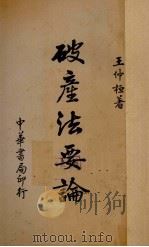 王仲桓著
破產法要論
中華書局印行